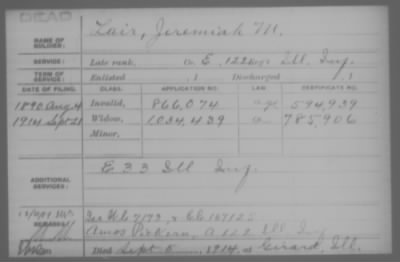 DEAD
NAME OF SOLDIER: Lair, Jeremiah M.
SERVICE: Late rank, Co. E, 122 Reg't Ill Inf.
TERM OF SERVICE: Enlisted , 1 Discharged , 1
DATE OF FILING. CLASS. APPLICATION NO. LAW. CERTIFICATE NO.
1890 Aug 4 Invalid, 866,074 594,939
1914 Sept 21 Widow, 1034,439 785,906
Minor,
ADDITIONAL SERVICES: E 33 Ill Inf.
REMARKS:
Amos A 122 Ill Inf
Died Sept 5, 1914, at Girard, Ill.